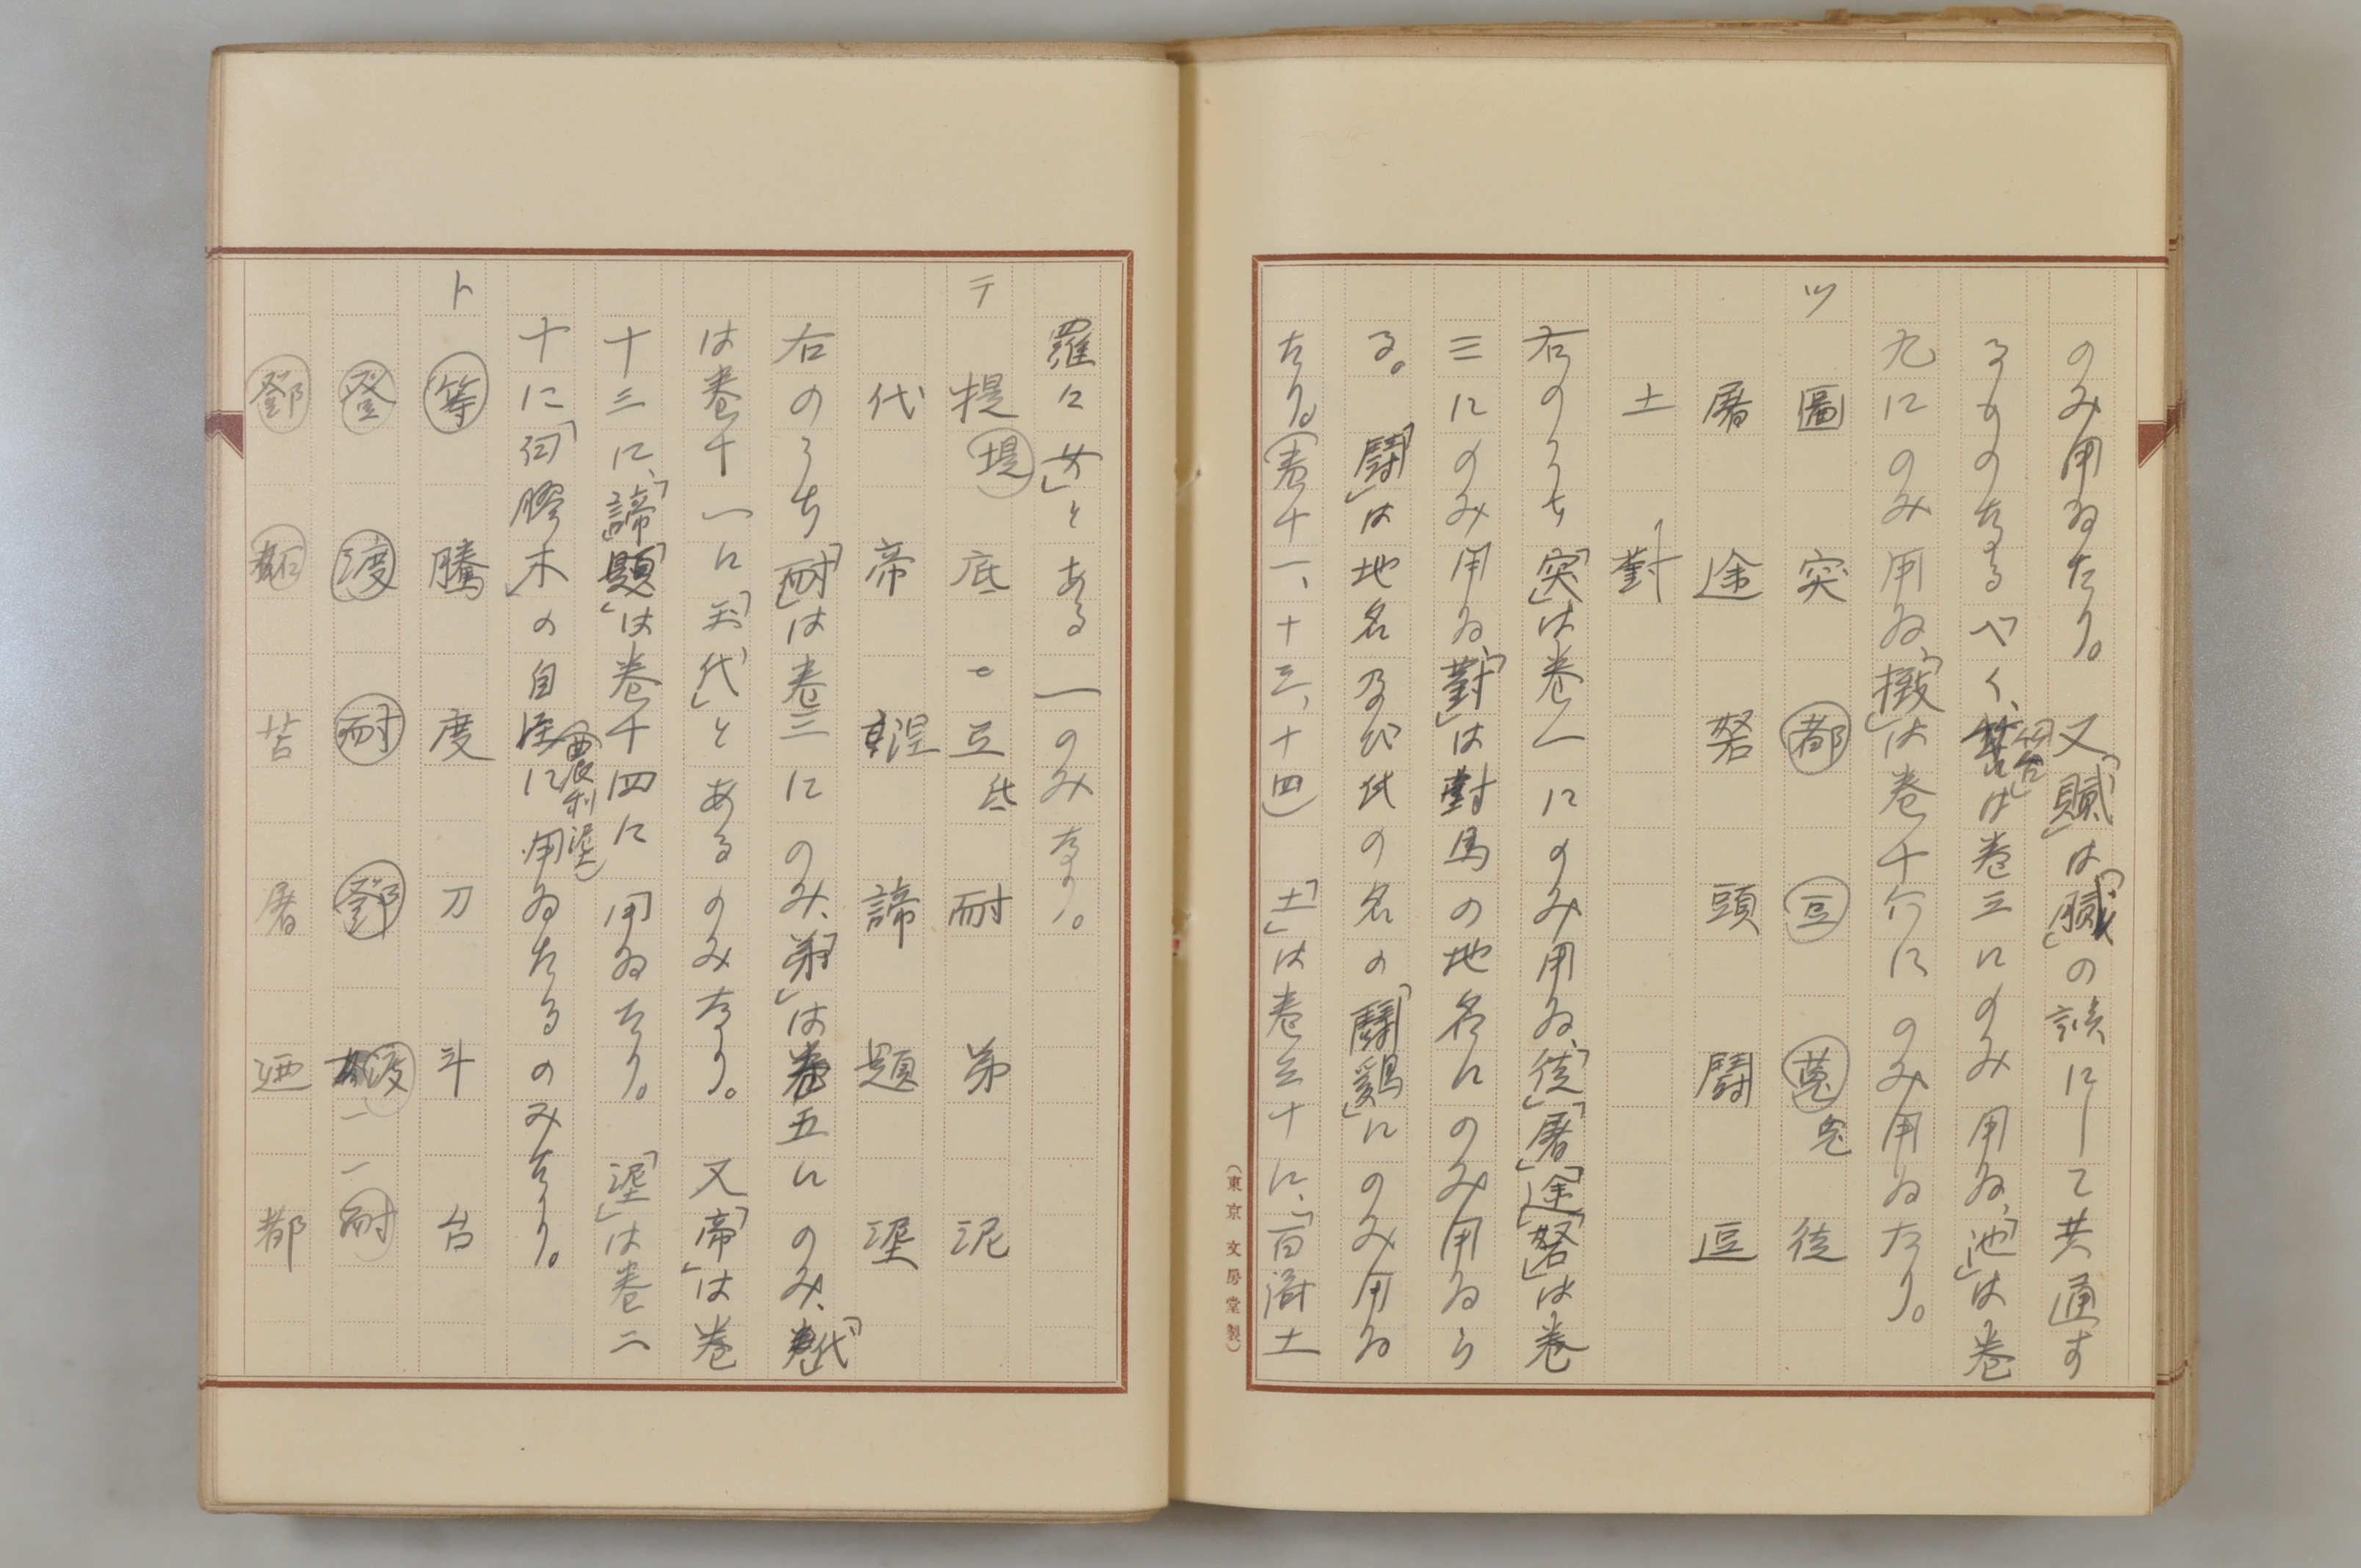 のみ用ゐたり。又「贓」は「贓」の誤にして共通す
るものなるべく、「笞」は巻三にのみ用ゐ、「池」は巻
九にのみ用ゐ、「撥」は巻十六にのみ用ゐたり。
ツ 圖 突 都 豆 菟 兎 徒
屠 途 努 頭 鬪 逗
土 對
右のうち「突」は巻一にのみ用ゐ、「徒」「屠」「途」「努」は巻
三にのみ用ゐ、「對」は對馬の地名にのみ用ゐら
る。「鬪」は地名及び氏の名の「鬪鷄」にのみ用ゐ
たり。(巻十一、十三、十四)「土」は巻三十に、「百濟土
(東京文房堂製)
羅に女」とある一のみなり。
テ 提 堤 底 豆 氐 耐 弟 泥
代 帝 涅 諦 題 埿
右のうち「耐」は巻三にのみ、「弟」は巻五にのみ、「代」
は巻十一に「代」とあるのみなり。又「帝」は巻
十三に、「諦」「題」は巻十四に用ゐたり。「埿」は巻二
十に「膠木の自注に(農利埿)用ゐたるのみなり。
ト 等 騰 度 刀 斗 台
登 渡 耐 鄧 渡 一 一 耐
鄧 苦 屠 迺 都